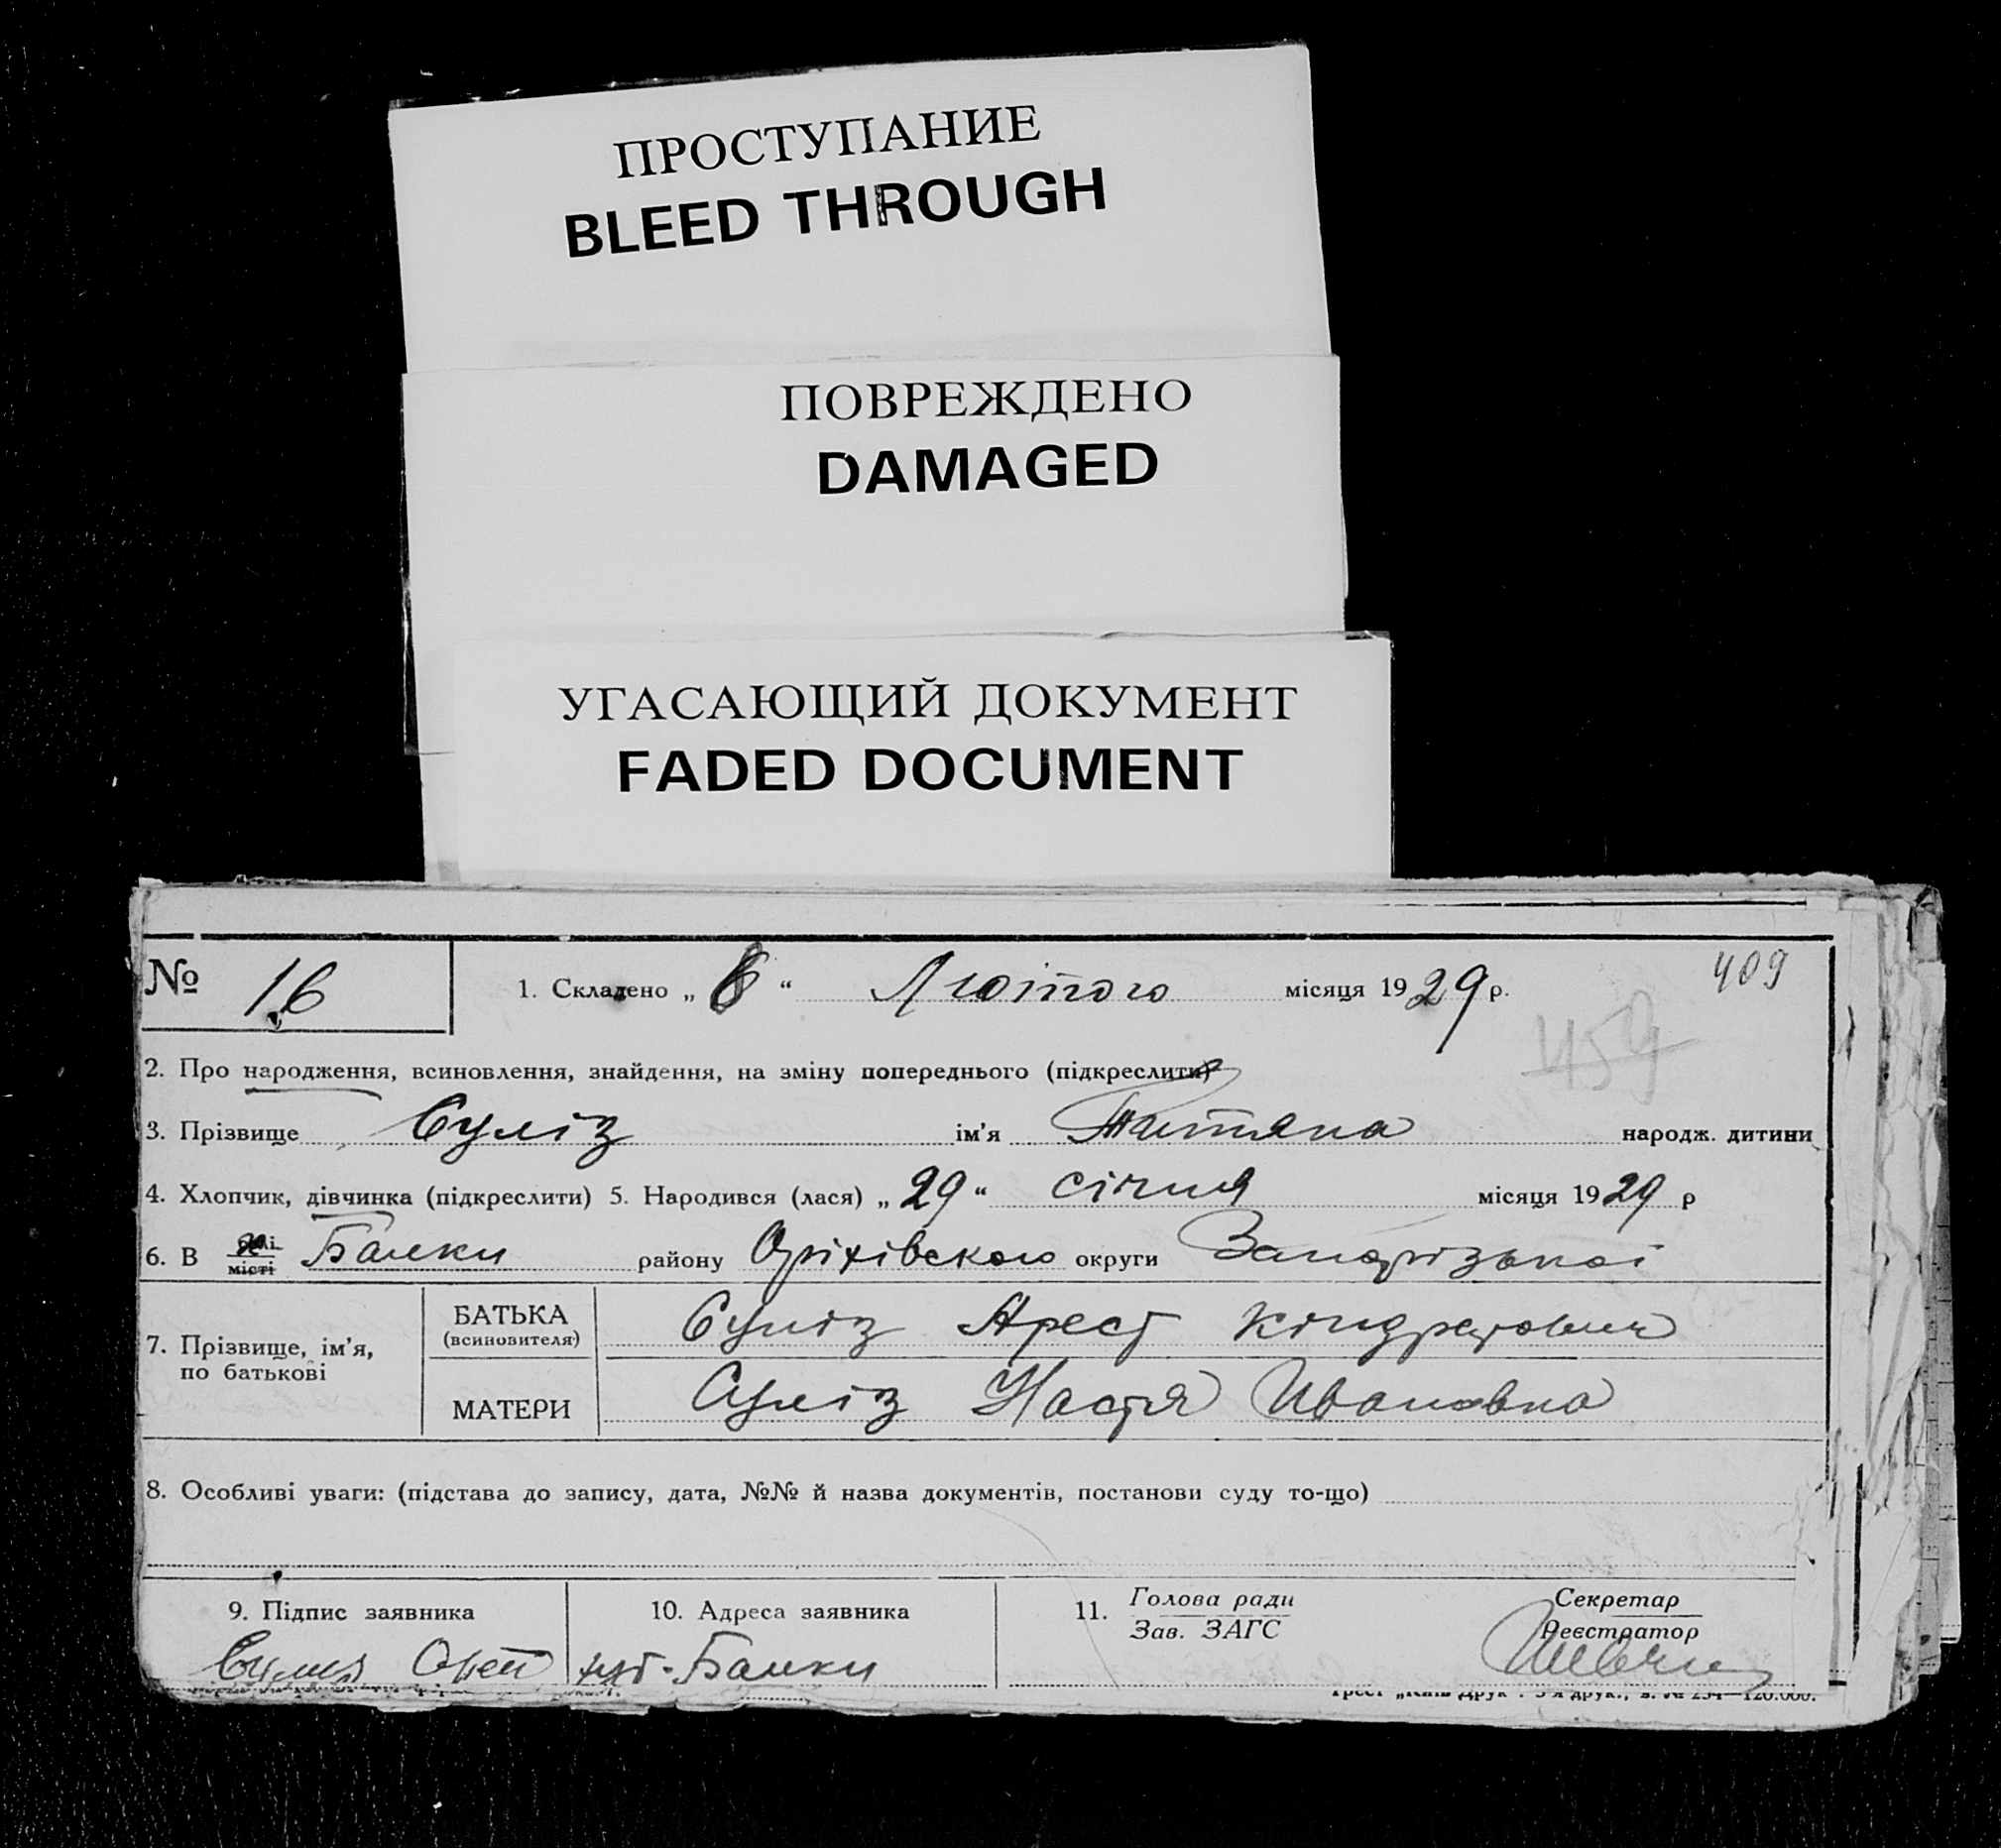 ПРОСТУПАНИЕ
BLEED THROUGH
ПОВРЕЖДЕНО
DAMAGED
УГАСАЮЩИЙ ДОКУМЕНТ
FADED DOCUMENT
№ 16
1. Складено „ 6 “ Лютого місяця 1929 р.
409
459
2. Про народження, всиновлення, знайдення, на зміну попереднього (підкреслити)
3. Прізвище Суліз ім’я Татяна народж. дитини
4. Хлопчик, дівчинка (підкреслити) 5. Народився (лася) „ 29 “ січня місяця 1929 р
6. В селі Балки району Оріхівского округи Запорізької
місті
7. Прізвище, ім’я, по батькові
БАТЬКА (всиновителя) Суліз Арест Кіндратович
МАТЕРИ Суліз Настя Ивановна
8. Особливі уваги: (підстава до запису, дата, №№ й назва документів, постанови суду то-що)
9. Підпис заявника
10. Адреса заявника
хут. Балки
11. Голова ради
Зав. ЗАГС
Секретар
Реєстратор